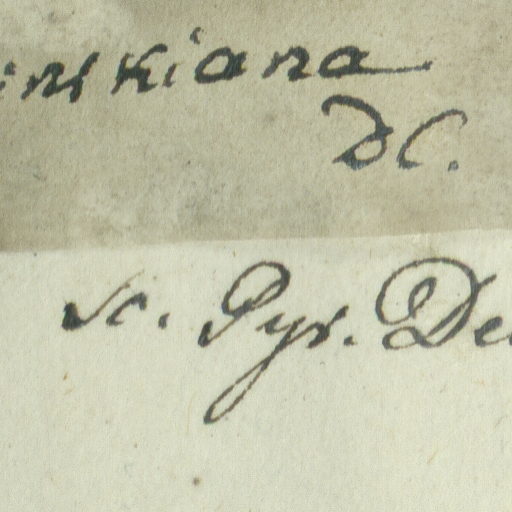 inskiana
DC.
sc. Pyr. De